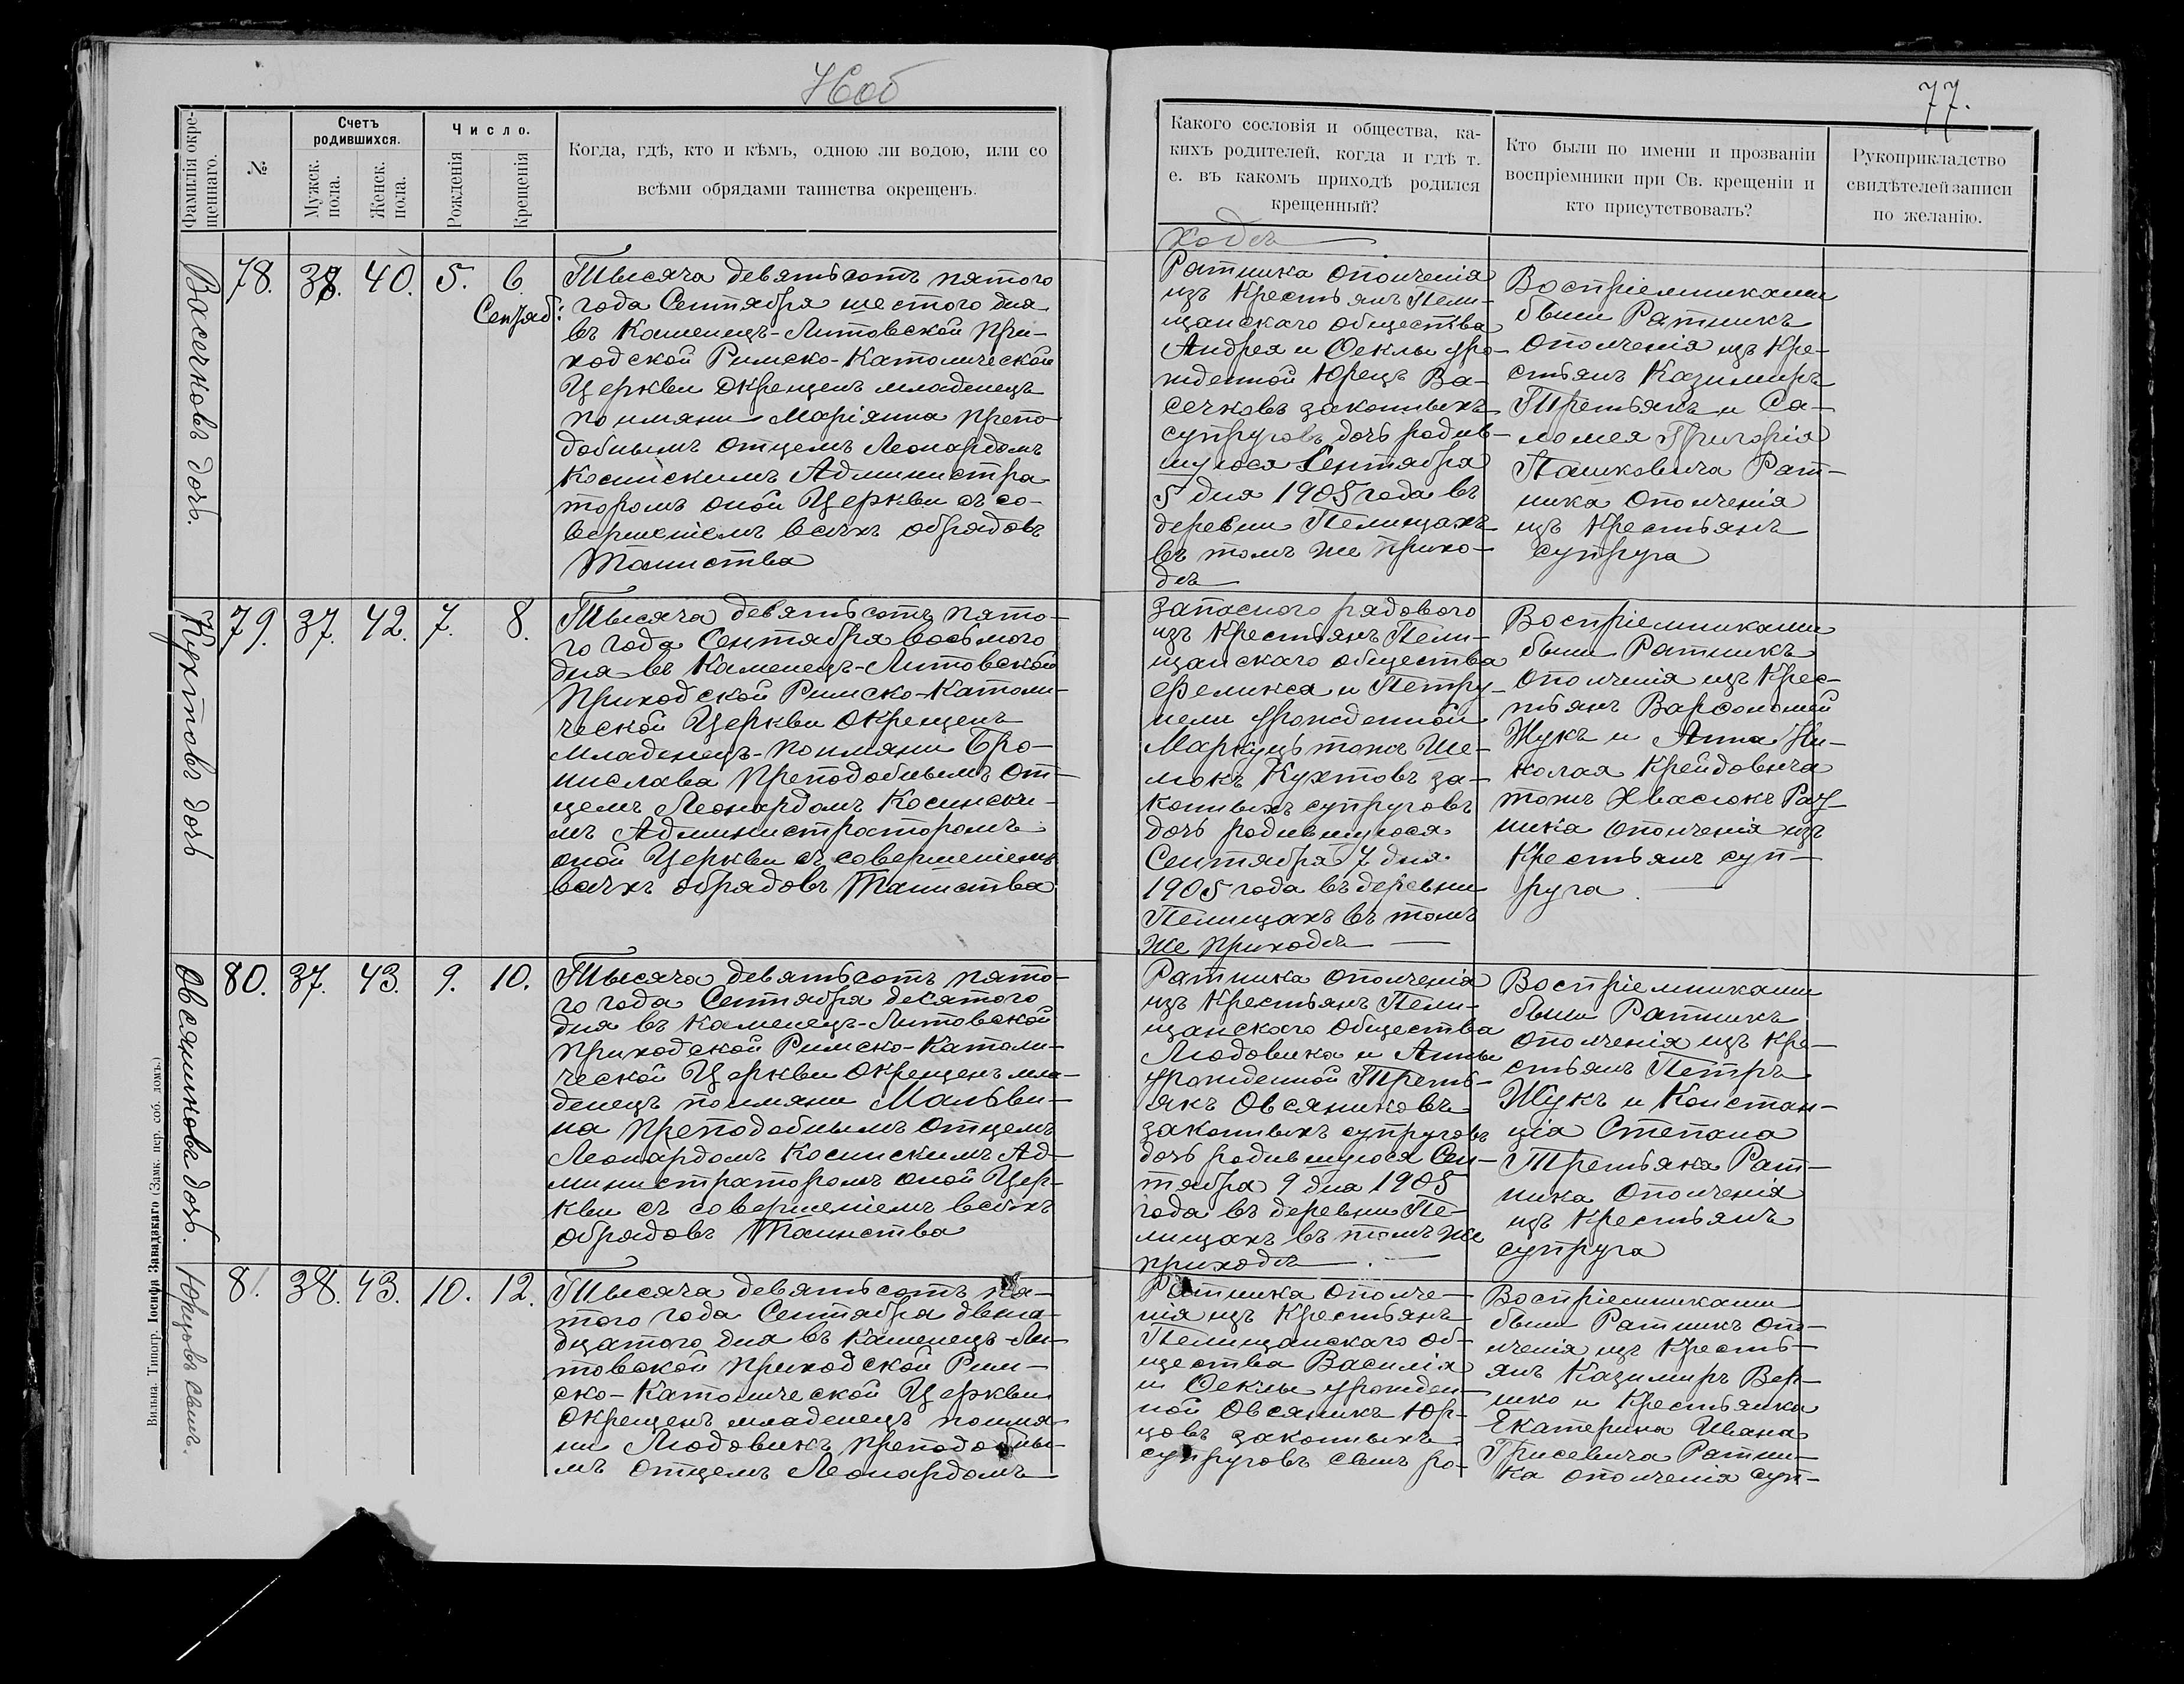 77.
Фамилія окре-
щеннаго.
№
Счетъ
родившихся.
Мужск.
пола.
Женск.
пола.
Число.
Рожденія
Крещенія
Когда, гдѣ, кто и кѣмъ, одною ли водою, или со
всѣми обрядами таинства окрещенъ.
Какого сословія и общества, ка-
кихъ родителей, когда и гдѣ т.
е. въ какомъ приходѣ родился
крещенный?
Кто были по имени и прозваніи
воспріемники при Св. крещеніи и
кто присутствовалъ?
Рукоприкладство
свидѣтелей записи
по желанію.
ходѣ
Васечковъ дочь.
78.
40.
5.
6
Сентяб:
Тысяча девятьсотъ пятого
года Сентября шестого дня
въ Каменецъ-Литовской При-
ходской Римско-Католической
Церкви окрещенъ младенецъ
по имяни Маріянна препо-
добнымъ отцемъ Леонардомъ
Косинскимъ Администра
торомъ оной Церкви съ со-
вершеніемъ всѣхъ обрядовъ
Таинства
Ратника ополченія
изъ Крестьянъ Пели-
щанскаго общества
Андрея и Ѳеклы уро-
жденной Юрецъ Ва-
сечковъ законныхъ
супруговъ дочь родив-
шуюся Сентября
5 дня 1905 года въ
деревни Пелищахъ
въ томъ же прихо-
дѣ
Воспріемниками
были Ратникъ
ополченія изъ Кре-
стьянъ Казимиръ
Третьякъ и Са-
ломея Григорія
Пашкевича Рат-
ника ополченія
изъ Крестьянъ
супруга
Кухтовъ дочь
79.
37.
42.
7.
8.
Тысяча девятьсотъ пято-
го года Сентября восьмого
дня въ Каменецъ-Литовской
Приходской Римско-Католи-
ческой Церкви окрещенъ
младенецъ-по имяни Бро-
нислава преподобнымъ от-
цемъ Леонардомъ Косински-
мъ Администраторомъ
оной Церкви съ совершеніемъ
всѣхъ обрядовъ Таинства
Запасного рядового
изъ Крестьянъ Пели-
щанскаго общества
Феликса и Петру-
нели урожденной
Маркуць тожъ Ше-
люкъ Кухтовъ за-
конныхъ супруговъ
дочь родившуюся
Сентября 7 дня
1905 года въ деревни
Пелищахъ въ томъ
же приходѣ
Воспріемниками
были Ратникъ
ополченія изъ Крес-
тьянъ Варфоломей
Жукъ и Анна Ни-
колая Крейдовича
тожъ Квасюкъ Рат-
ника ополченія изъ
Крестьянъ суп-
руга.
Овсяниковъ дочь.
80.
37.
43.
9.
10.
Тысяча девятьсотъ пято-
го года Сентября десятого
дня въ Каменецъ-Литовской
приходской Римско-Католи-
ческой Церкви окрещенъ мла-
денецъ по имяни Мальви-
на преподобнымъ отцемъ
Леонардомъ Косинскимъ Ад-
министраторомъ оной Цер-
кви съ совершеніемъ всѣхъ
обрядовъ Таинства
Ратника ополченія
изъ Крестьянъ Пели-
щанскаго общества
Людовика и Анны
урожденной Треть-
якъ Овсяниковъ
законныхъ супруговъ
дочь родившуюся Сен-
тября 9 дня 1905
года въ деревни Пе-
лищахъ въ томъ же
приходѣ.
Воспріемниками
были Ратникъ
ополченія изъ Кре-
стьянъ Петръ
Жукъ и Констан-
ція Степана
Третьяка Рат-
ника ополченія
изъ Крестьянъ
супруга
Юрцовъ сынъ.
81.
38.
43.
10.
12.
Тысяча девятьсотъ пя-
того года Сентября двена-
дцатого дня въ Каменецъ-Ли-
товской приходской Рим-
ско-Католической Церкви
окрещенъ младенецъ по имя-
ни Людовикъ преподобны-
мъ отцемъ Леонардомъ
Ратника ополче-
нія изъ Крестьянъ
Пелищанскаго об-
щества Василія
и Ѳеклы урожден-
ной Овсяникъ Юр-
цовъ законныхъ
супруговъ сынъ ро-
Воспріемниками
были Ратникъ опо-
лченія изъ Кресть-
янъ Казимиръ Вер-
Екатерина Ивана
Грисевича Ратни-
ка ополченія суп-
Вильна. Типогр. Іосифа Завадзкаго (Замк. пер. соб. домъ.)